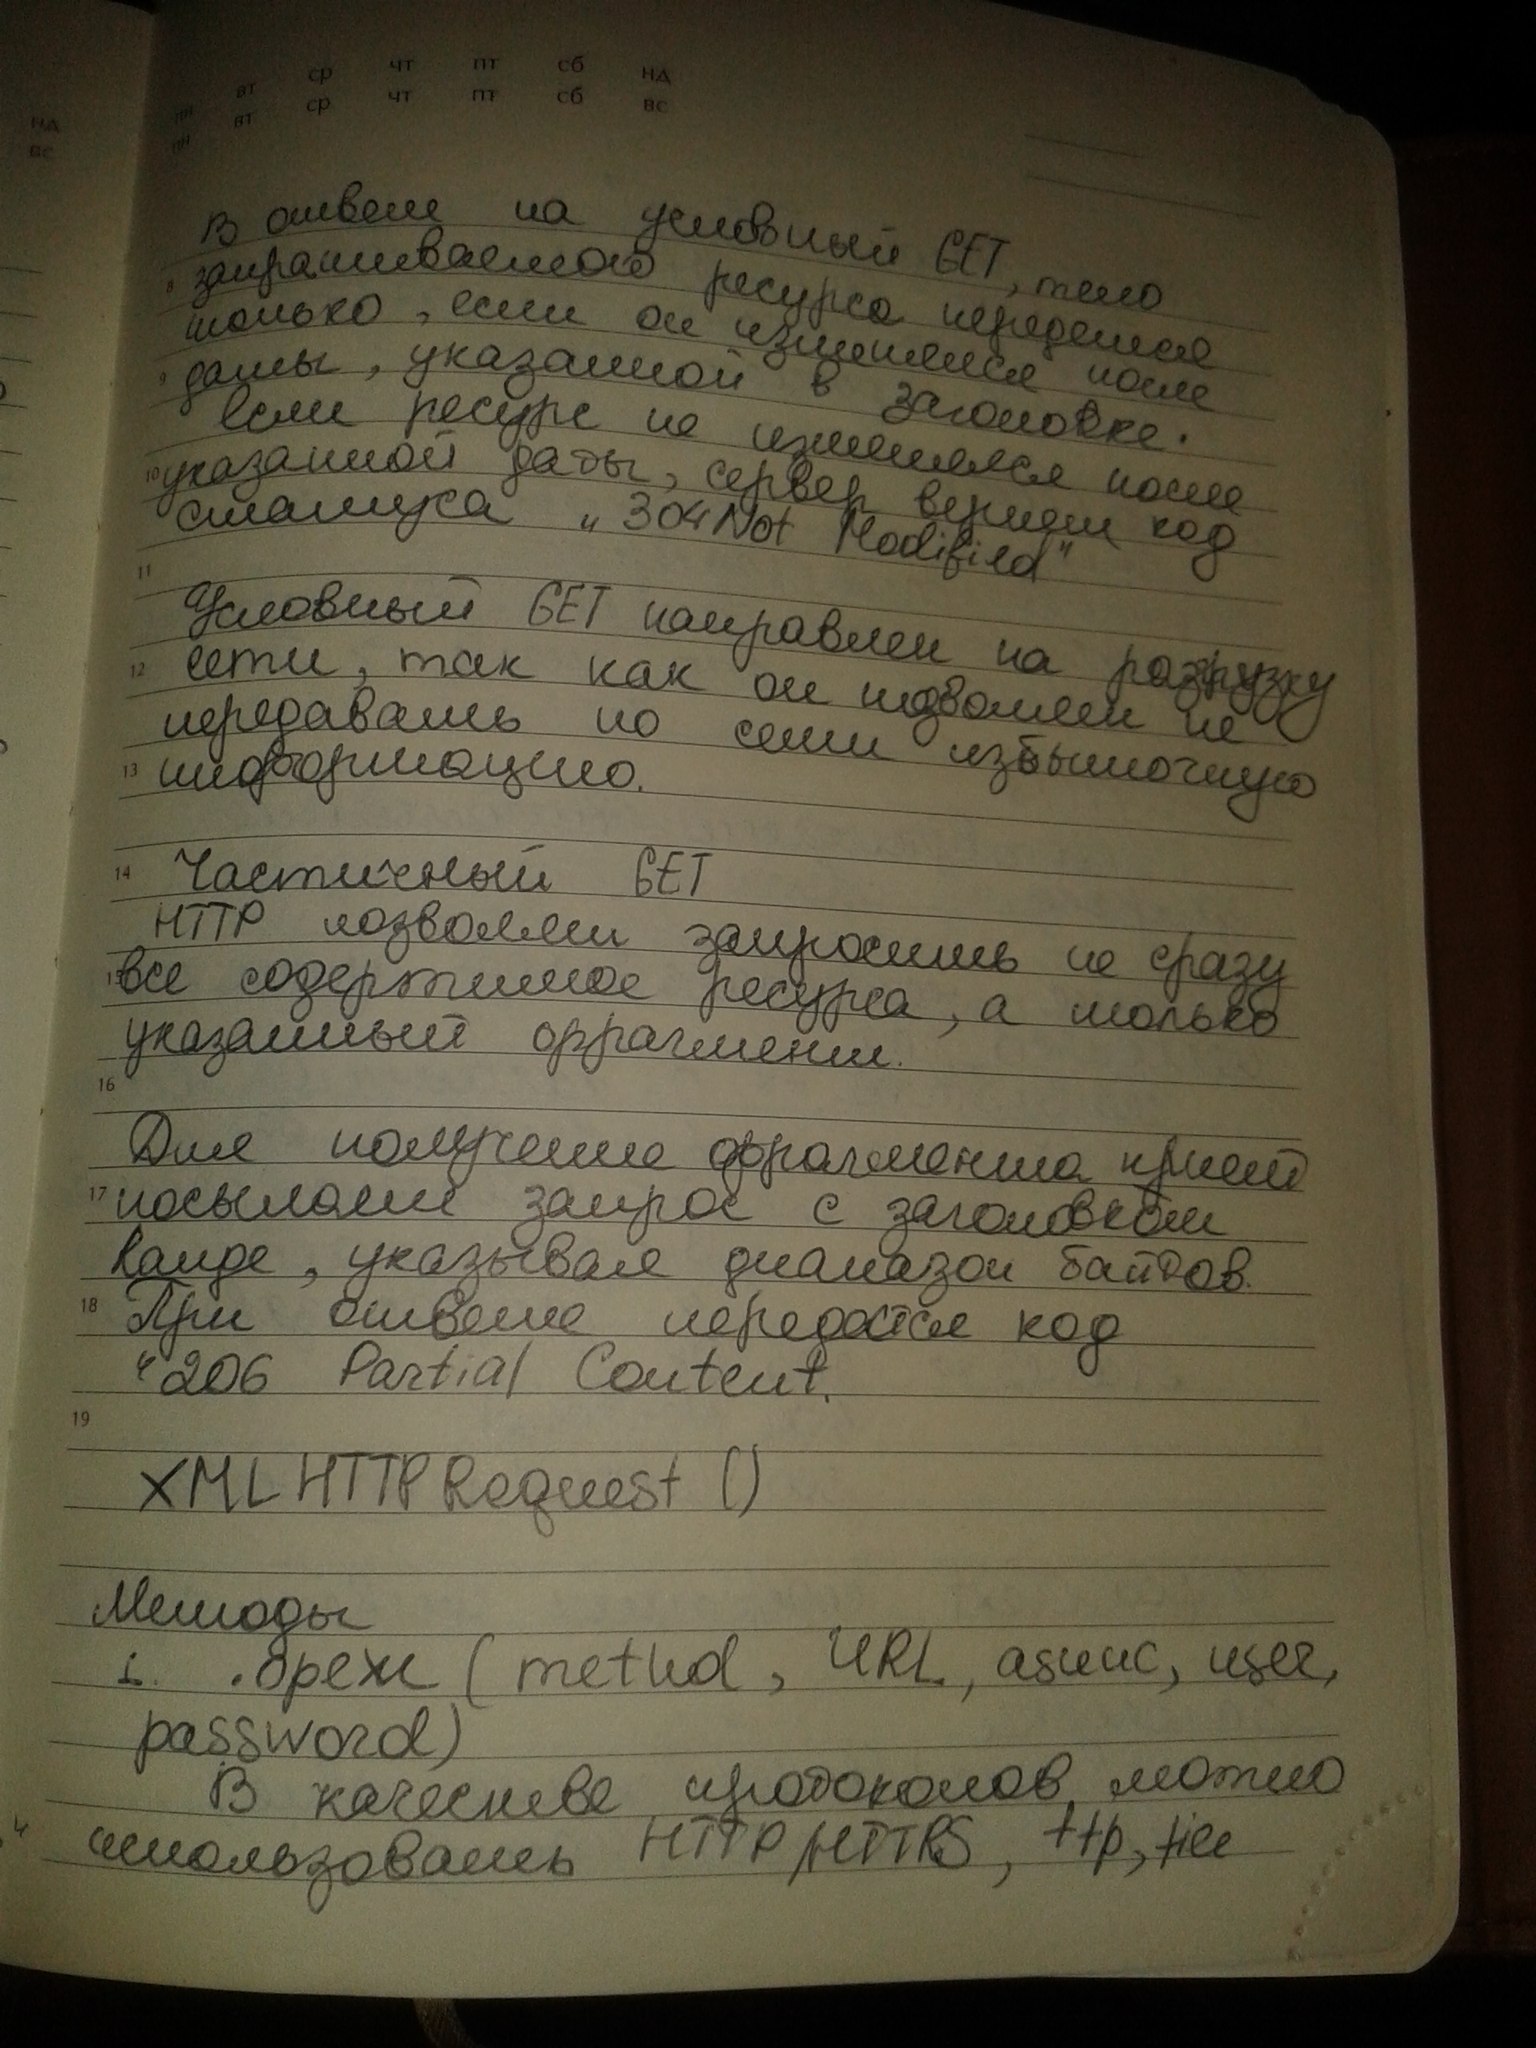 нд
вс
пн вт ср чт пт сб нд
пн вт ср чт пт сб вс
В ответе на условный GET, тело
8 запрашиваемого ресурса передается
только, если он изменялся после
9 даты, указанной в заголовке.
Если ресурс не изменялся после
10 указанной даты, сервер вернет код
статуса „304 Not Modified"
11
Условный GET направлен на разгрузку
12 сети, так как он позволяет не
передавать по сети избыточную
13 информацию.
14 Частичный GET
HTTP позволяет запросить не сразу
15 все содержимое ресурса, а только
указанный фрагмент.
16
Для получение фрагмента клиент
17 посылает запрос с заголовком
Range, указывая диапазон байтов.
18 При ответе передается код
"206 Partial Content.
19
XMLHTTPRequest ()
Методы
1. .open (method, URL, async, user,
password)
В качестве протоколов можно
использовать HTTP/HTTPS, ftp, file